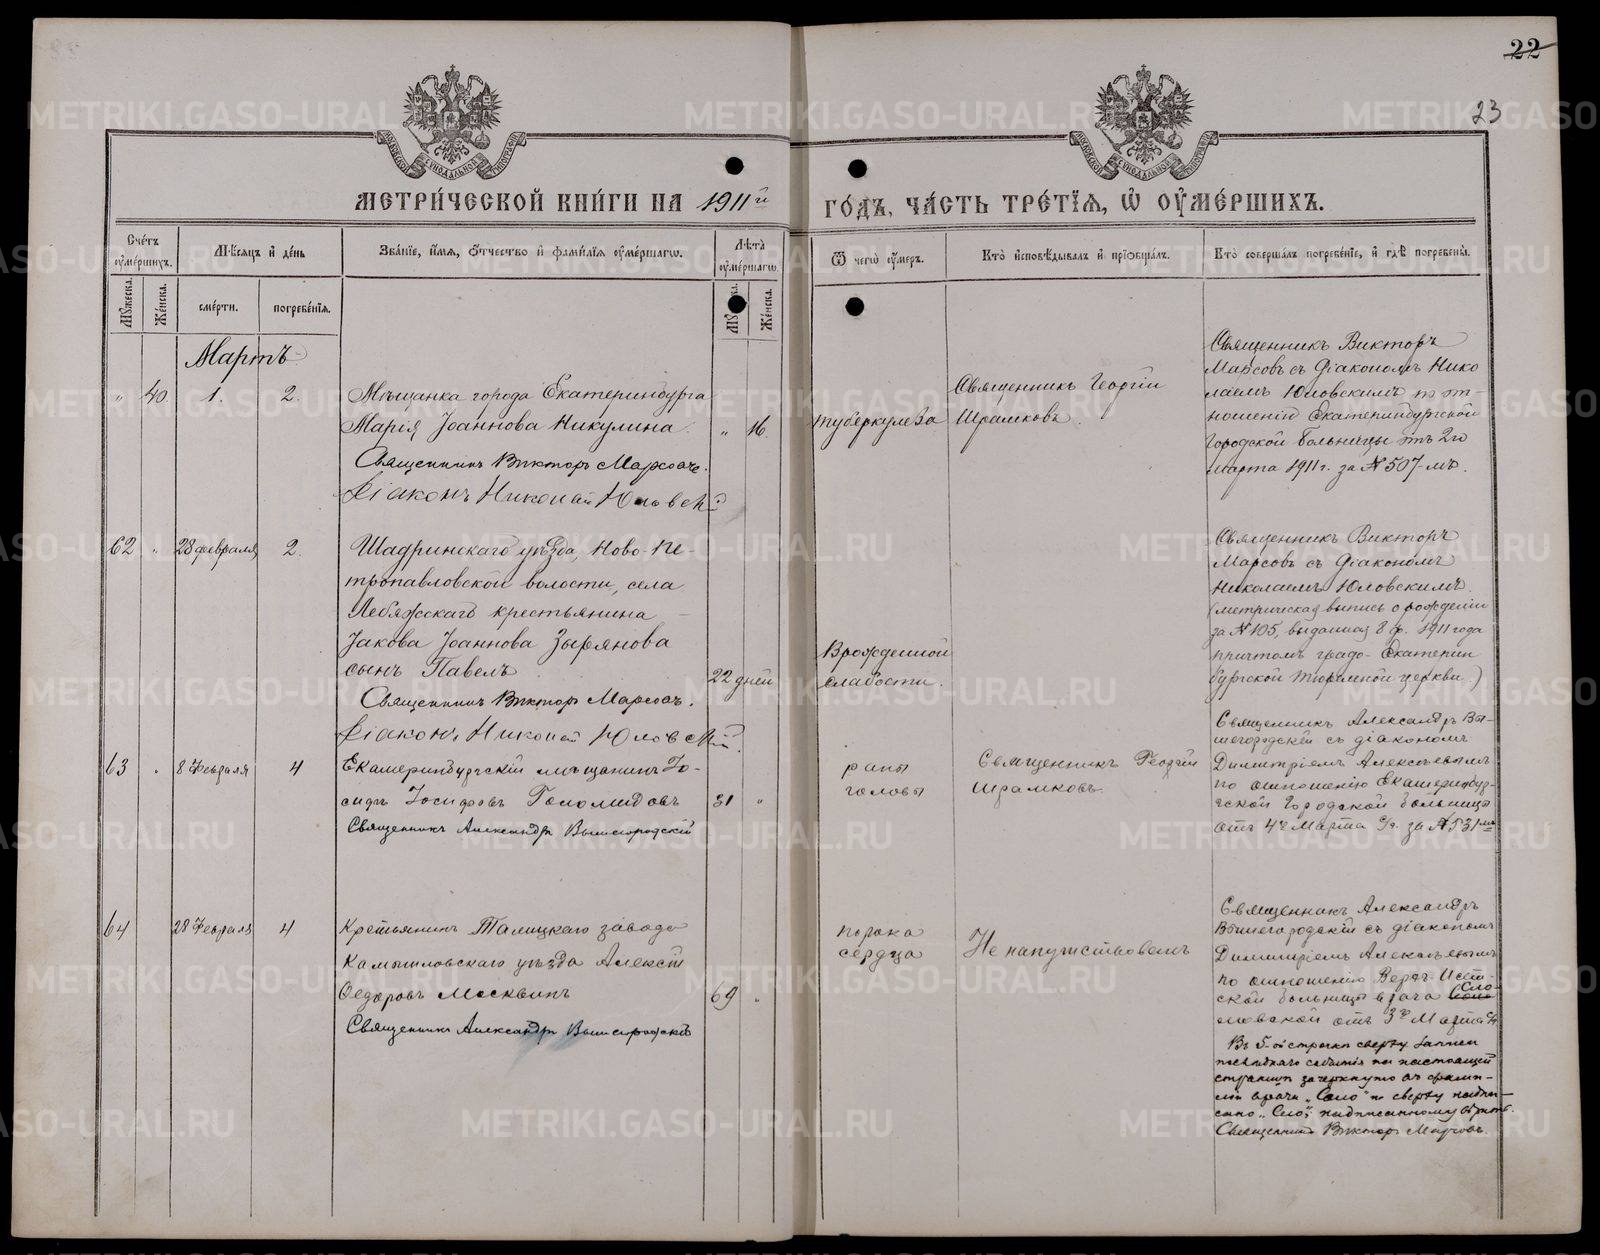 22
23
МЕТРИ́ЧЕСКОЙ КНИ́ГИ НА 1911й ГО́ДЪ, ЧА́СТЬ ТРЕ́ТІѦ, Ѡ ОУ҆МЕ́РШИХЪ.
Сче́тъ оумéршихъ.
Мѣсѧцъ и дéнь
Звáніе, и́мѧ, о́тчество и фамиліѧ оумéршагѡ.
Лѣтà оумéршагѡ.
Ѿ чегѡ̀ оу́меръ.
Кто̀ исповѣдывалъ и пріѡбщáлъ.
Кто̀ совершáлъ погребéніе, и гдѣ погребены̀.
Мꙋжеска.
Жéнска.
смéрти.
погребéніѧ.
Жéнска.
Мартъ
" 40 1. 2.
Мѣщанка города Екатеринбурга
Марія Іоаннова Никулина.
" 16.
Священникъ Викторъ Марсовъ.
Діаконъ Николай Юловскій
туберкулеза
Священникъ Георгій
Шрамковъ.
Священникъ Викторъ
Марсовъ съ діакономъ Нико
лаемъ Юловскимъ по от-
ношенію Екатеринбургской
Городской больницы отъ 2го
марта 1911 г. за № 507-мъ.
62 " 28 февраля 2.
Шадринскаго уѣзда, Ново-Пе-
тропавловской волости, села
Лебяжскаго крестьянина
Іакова Іоаннова Зырянова
сынъ Павелъ
22 дней
Священникъ Викторъ Марсовъ.
Діаконъ Николай Юловскій.
Врожденной
слабости.
Священникъ Викторъ
Марсовъ съ діакономъ
Николаемъ Юловскимъ.
(метрическая выпись о рожденіи
за № 105, выданная 8 ф. 1911 года
причтомъ градо-Екатерин
бургской тюремной церкви.)
63 " 8 Февраля 4
Екатеринбургскій мѣщанинъ Іо-
сифъ Іосифовъ Голомидовъ
31 "
Священникъ Александръ Вышегородскій
раны
головы
Священникъ Георгій
Шрамковъ.
Священникъ Александръ Вы-
шегородскій съ діакономъ
Димитріемъ
по отношенію Екатеринбур-
гской Городской больницы
отъ 4го Марта с/г. за № 531мъ
64 28 Февраля 4
Крестьянинъ Талицкаго завода
Камышловскаго уѣзда Алексѣй
Ѳедоровъ Москвинъ
69 "
Священникъ Александръ Вышегородскій
порока
сердца
Не напутствованъ
Священникъ Александръ
Вышегородскій съ діакономъ
Димитріемъ
по отношенію Верхъ-Исет-
ской больницы врача
Сло-
отъ 3го Марта с/г
Въ 5-ой строкѣ сверху записи
послѣдняго событія на настоящей
страницѣ зачеркнуто въ фами-
ліи врача „ " и сверху надпи-
сано „Сло", надписанному вѣрить.
Священникъ Викторъ Марсовъ.